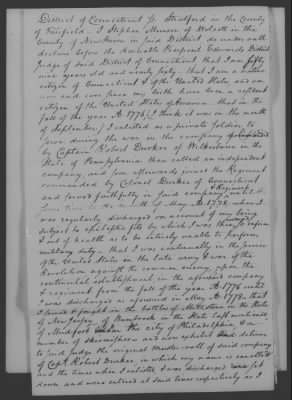 District of Connecticut Ss. Stratford in the County
of Fairfield. I Stephen Munson of Wolcott in the
County of New Haven in said District do under oath
declare before the Honble Pierpont Edwards District
Judge of said District of Connecticut that I am fifty
nine years old and nearly sixty. That I am a native
citizen of Connecticut & of the United States, and am
now and ever since my birth have been a resident
citizen of the United States of America. that in the
fall of the year AD. 1776, (I think it was in the month
of September,) I enlisted as a private soldier to
serve during the war in the company
by Captain Robert Durkee of Wilkesbarre in the
State of Pennsylvania then called an independent
company, and soon afterwards joined the Regiment
commanded by Colonel Durkee of Connecticut
and served faithfully in said company & Regiment until
the month of May AD. 1778, when I
was regularly discharged on account of my being
subject to epileptic fits by which I was
& out of health as to be entirely unable to perform
military duty. That I was continually in the service
of the United States in the late army & war of the
Revolution against the common enemy, upon the
continental establishment in the aforesaid company
& regiment from the fall of the year AD. 1776 until
I was discharged as aforesaid in May AD. 1778. that
I served & fought in the battles of in the State
of New Jersey, of in the State last mentioned,
of the city of Philadelphia & in a
number of skirmishes and now exhibit and deliver
to said Judge the original Muster-roll of said company
of Capt. Robert Durkee, in which my name is enrolled
and the times when I enlisted & was discharged are set
down and were entered at said times respectively as I